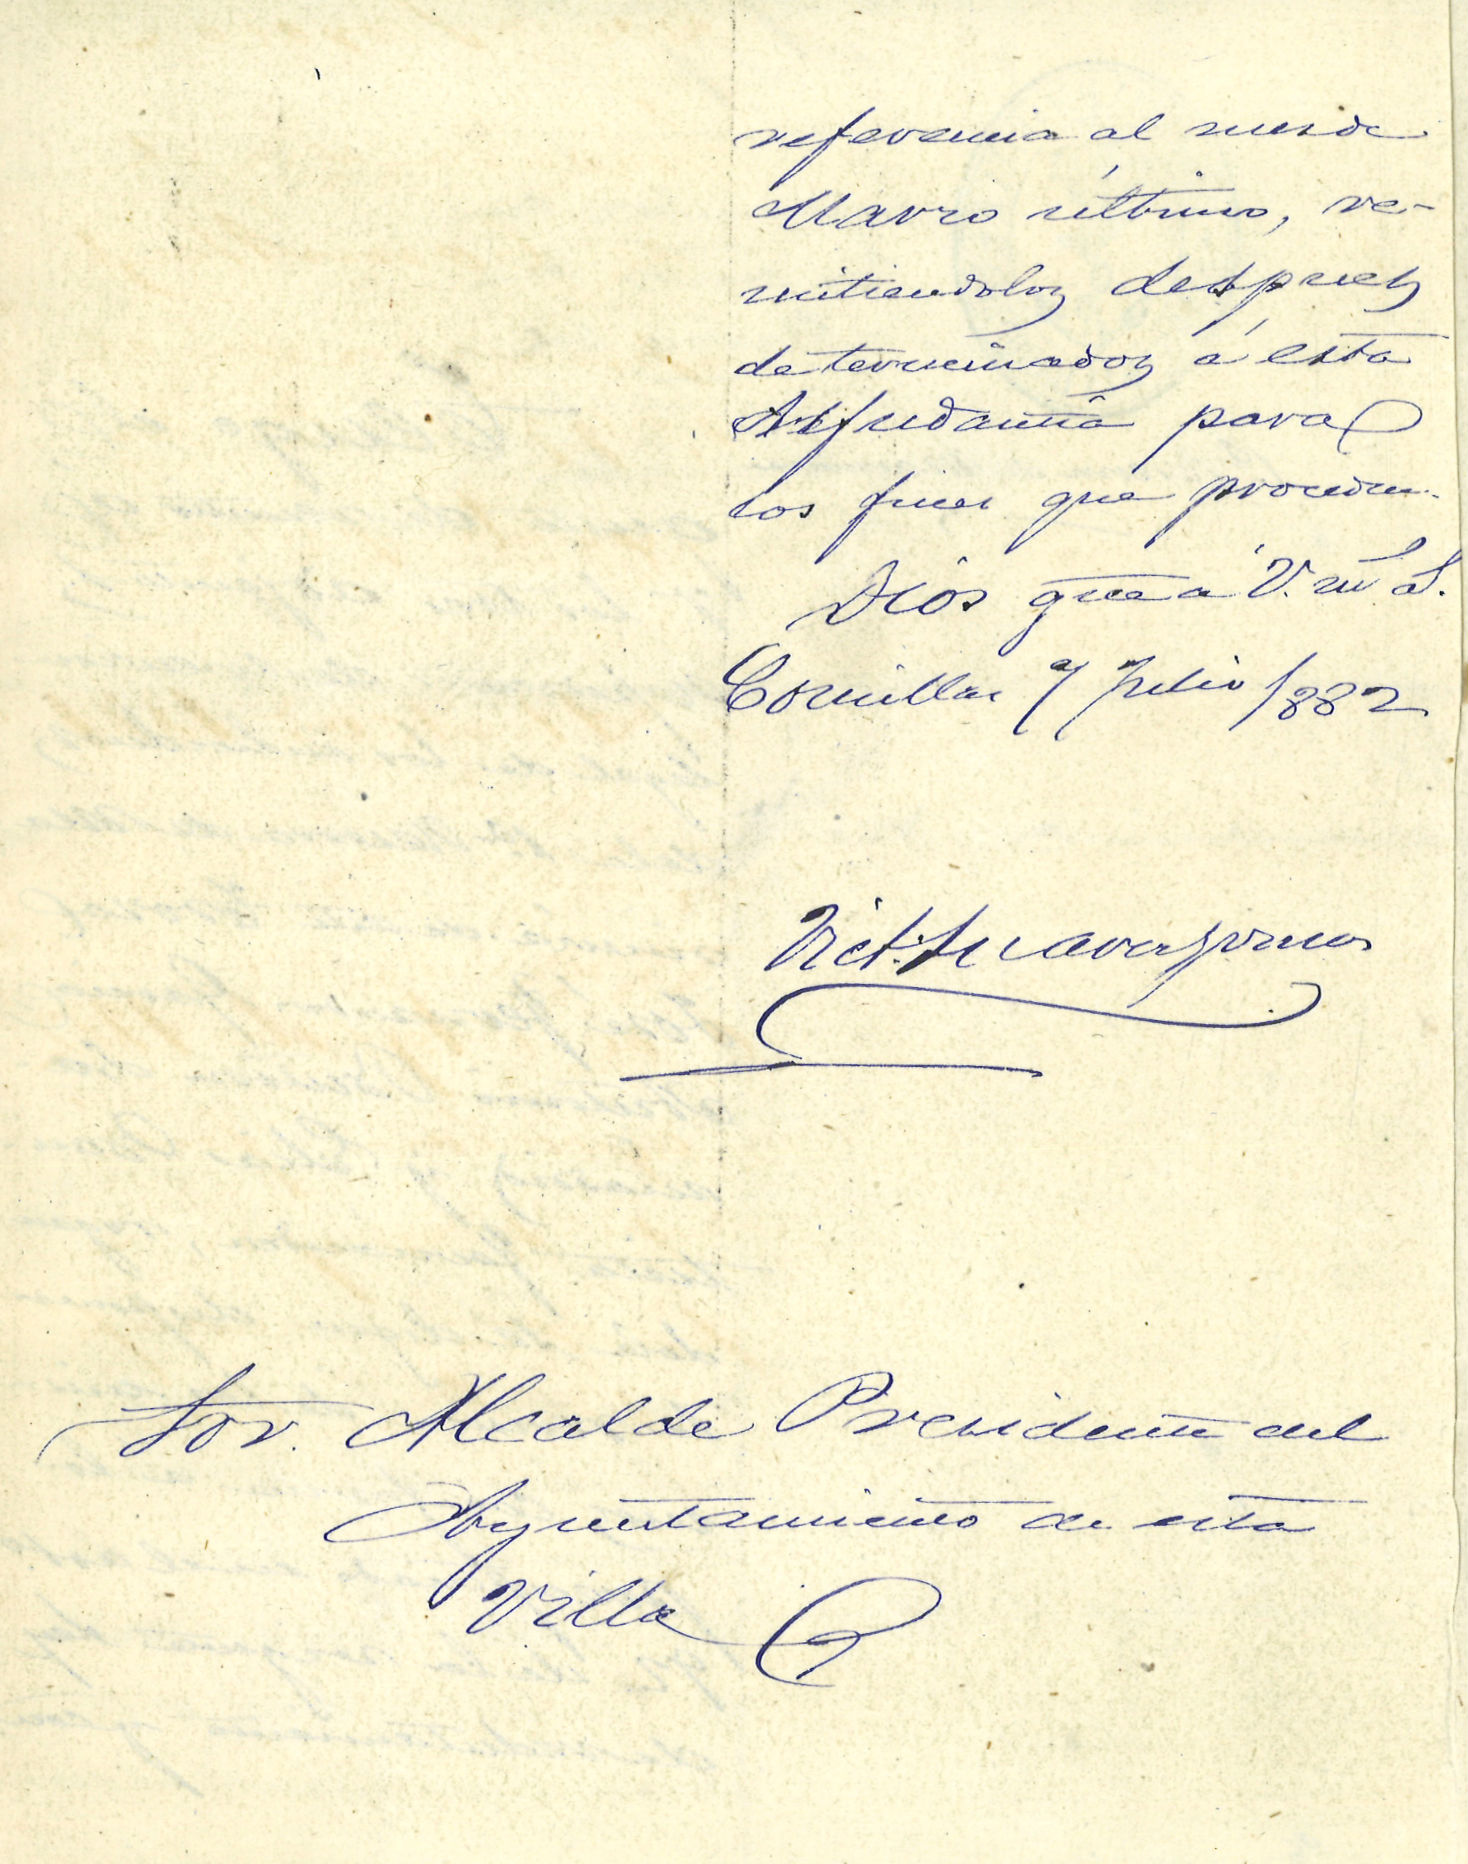 referencia al mes de
Marzo último, re-
mitiendolos despues
determinados á esta
Ayudantía para
los fines que proceden.
Dios gue a V. m⁠ˢ a⁠ˢ.
Comillas 7 Julio 1882
Vict.
Sor. Alcalde Presidente del
Ayuntamiento de esta
Villa